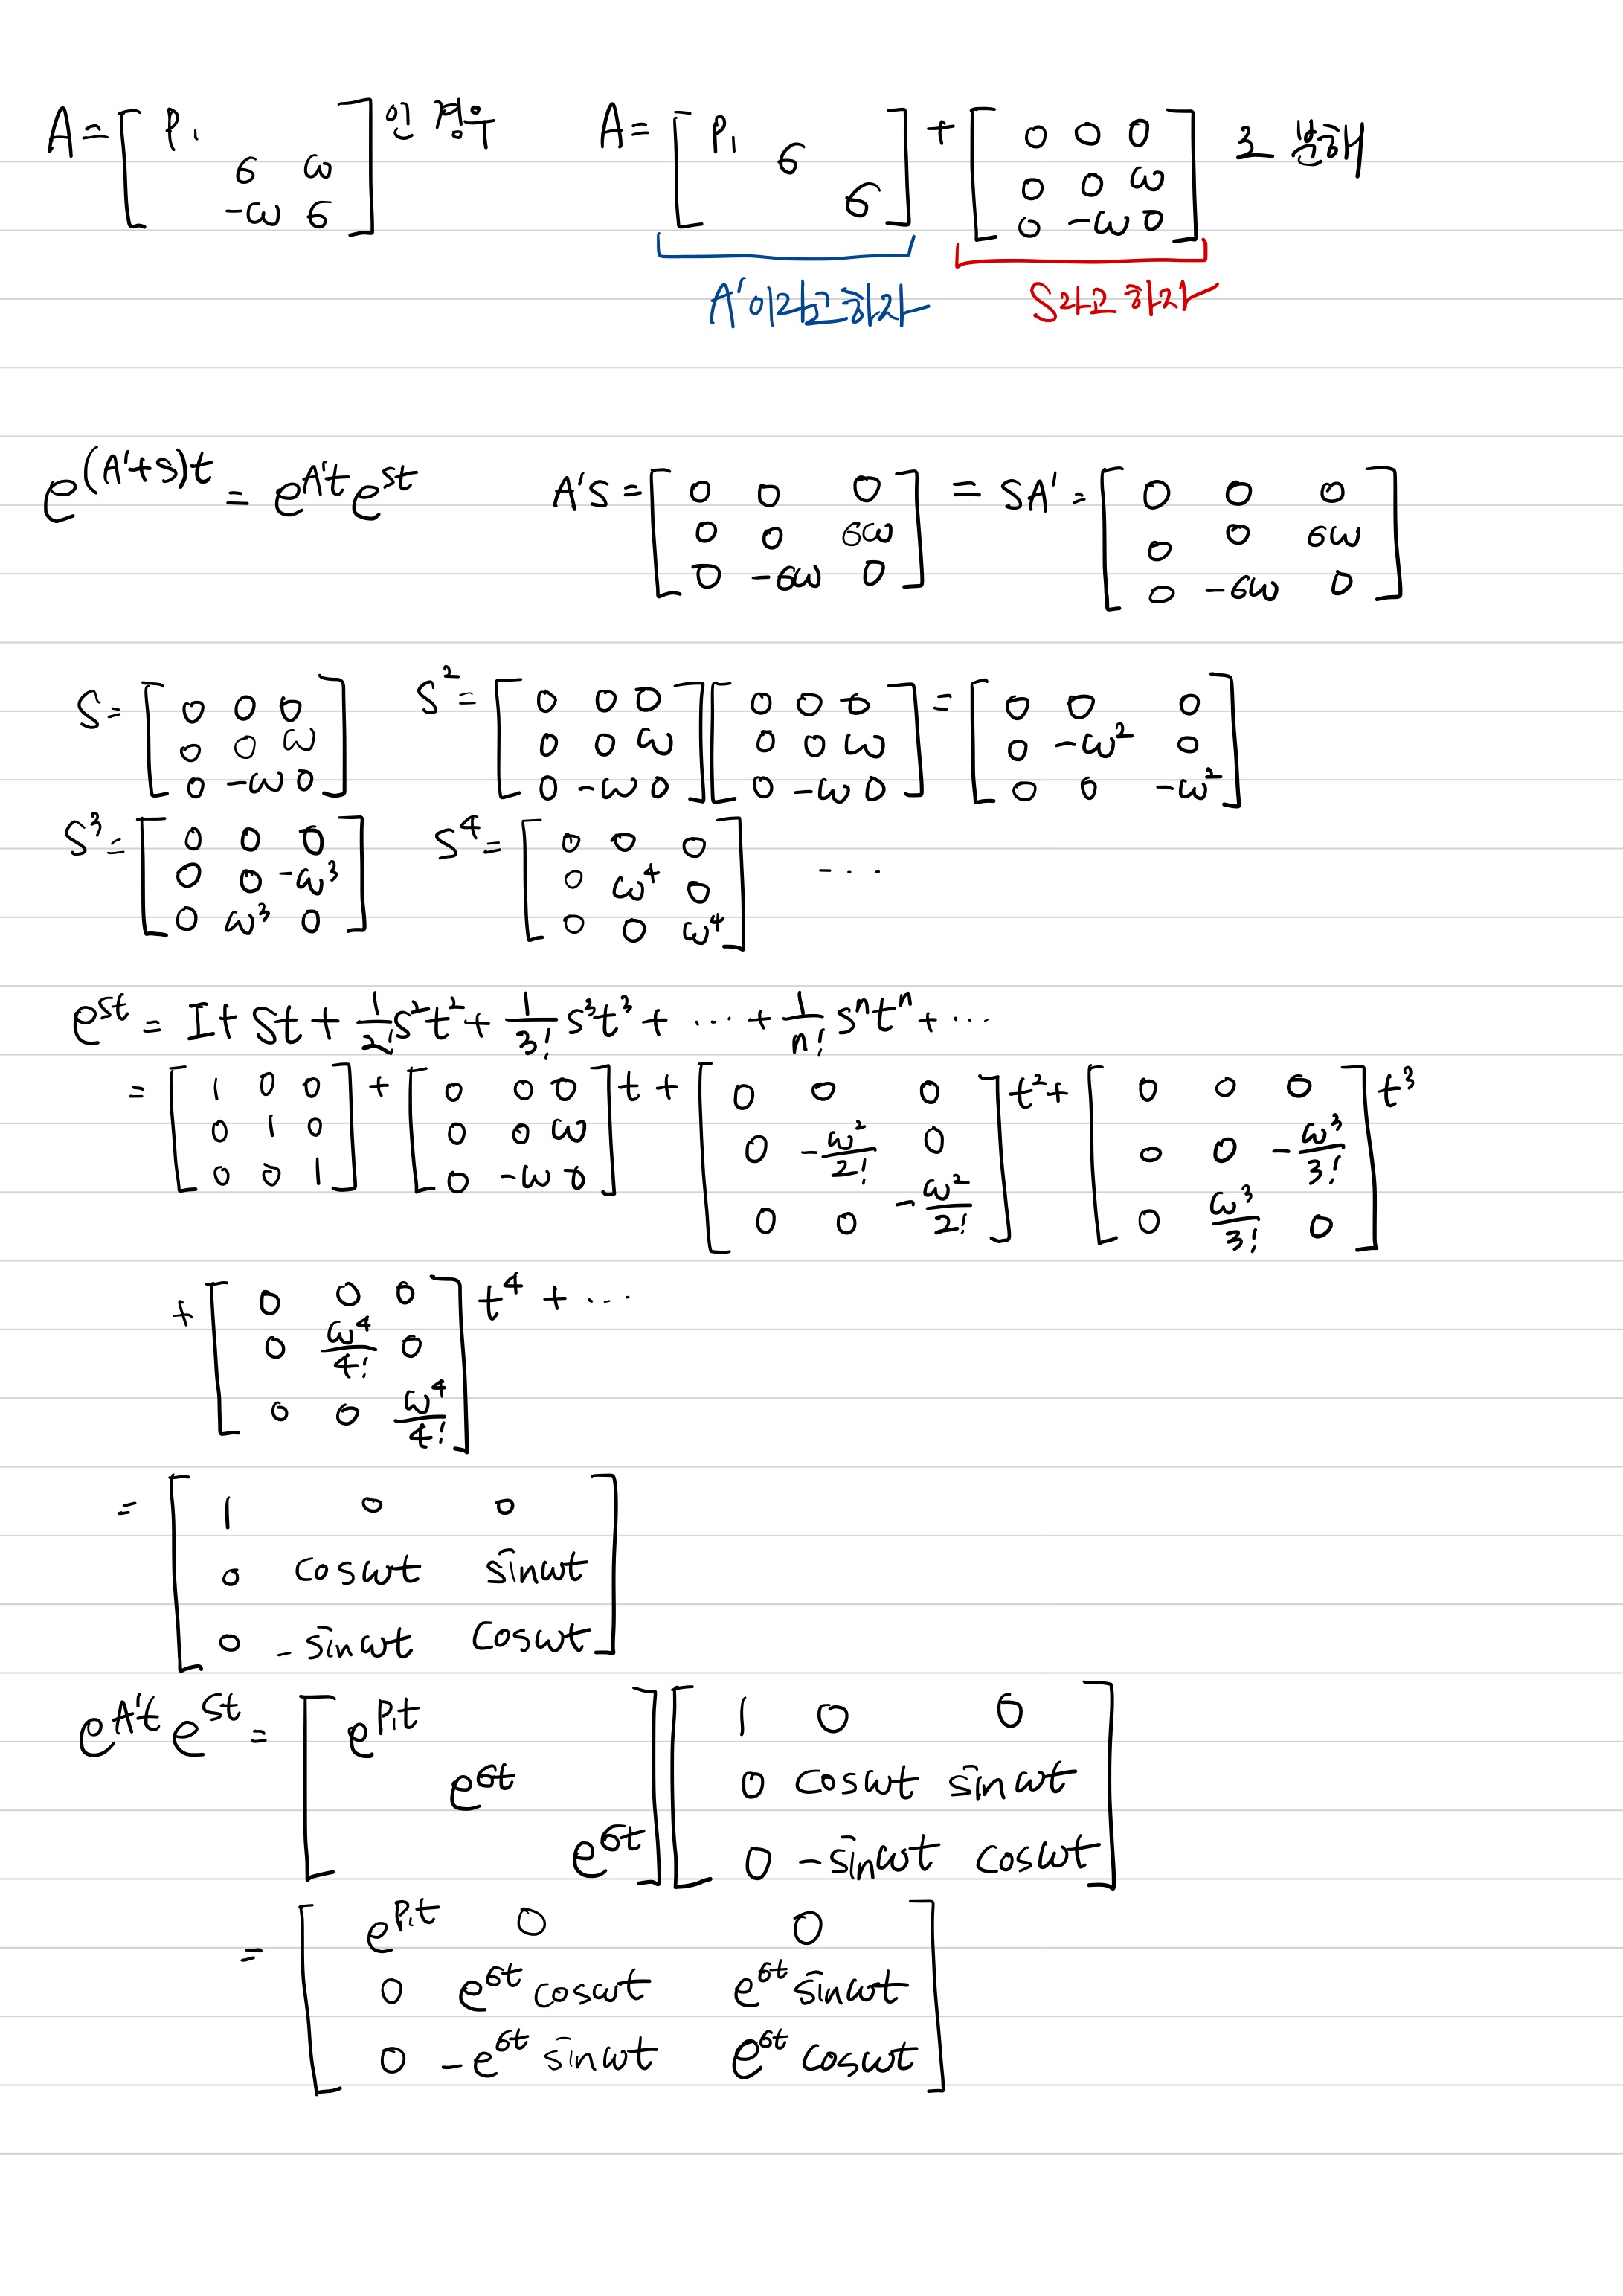 A = [ P₁ ; σ ω ; -ω σ ] 인 경우 A = [ P₁ ; σ ; σ ] + [ 0 0 0 ; 0 0 ω ; 0 -ω 0 ] 로 분해
A'이라고하자 S라고 하자
e^(A'+S)t = e^A't e^St A'S = [ 0 0 0 ; 0 0 σω ; 0 -σω 0 ] = SA' = [ 0 0 0 ; 0 0 σω ; 0 -σω 0 ]
S = [ 0 0 0 ; 0 0 ω ; 0 -ω 0 ] S² = [ 0 0 0 ; 0 0 ω ; 0 -ω 0 ][ 0 0 0 ; 0 0 ω ; 0 -ω 0 ] = [ 0 0 0 ; 0 -ω² 0 ; 0 0 -ω² ]
S³ = [ 0 0 0 ; 0 0 -ω³ ; 0 ω³ 0 ] S⁴ = [ 0 0 0 ; 0 ω⁴ 0 ; 0 0 ω⁴ ] ...
e^St = I + St + 1/2! S²t² + 1/3! S³t³ + ... + 1/n! Sⁿtⁿ + ...
= [ 1 0 0 ; 0 1 0 ; 0 0 1 ] + [ 0 0 0 ; 0 0 ω ; 0 -ω 0 ] t + [ 0 0 0 ; 0 -ω²/2! 0 ; 0 0 -ω²/2! ] t² + [ 0 0 0 ; 0 0 -ω³/3! ; 0 ω³/3! 0 ] t³
+ [ 0 0 0 ; 0 ω⁴/4! 0 ; 0 0 ω⁴/4! ] t⁴ + ...
= [ 1 0 0 ; 0 cosωt sinωt ; 0 -sinωt cosωt ]
e^A't e^St = [ e^P₁t ; e^σt ; e^σt ][ 1 0 0 ; 0 cosωt sinωt ; 0 -sinωt cosωt ]
= [ e^P₁t 0 0 ; 0 e^σt cosωt e^σt sinωt ; 0 -e^σt sinωt e^σt cosωt ]